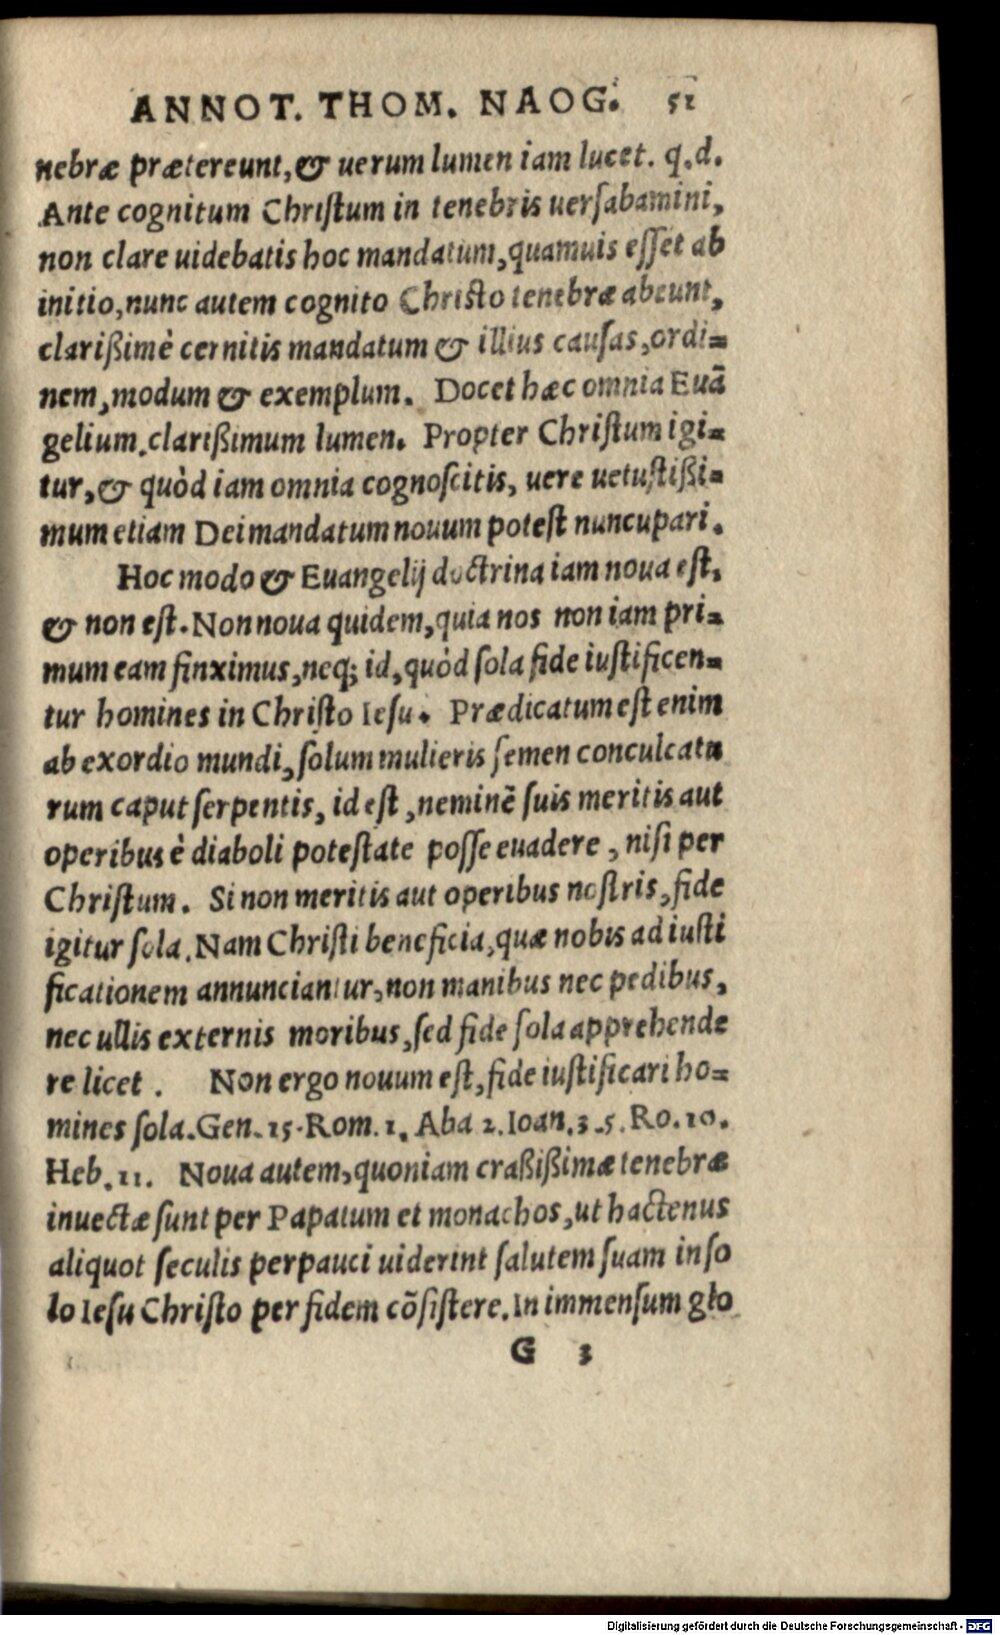 ANNOT. THOM. NAOG. 51
nebræ prætereunt, & uerum lumen iam lucet. q.d.
Ante cognitum Christum in tenebris uersabamini,
non clare uidebatis hoc mandatum, quamuis esset ab
initio, nunc autem cognito Christo tenebræ abeunt,
clarißimè cernitis mandatum & illius causas, ordi=
nem, modum & exemplum. Docet hæc omnia Euā
gelium, clarißimum lumen. Propter Christum igi=
tur, & quòd iam omnia cognoscitis, uere uetustißi=
mum etiam Dei mandatum nouum potest nuncupari.
Hoc modo & Euangelij doctrina iam noua est,
& non est. Non noua quidem, quia nos non iam pri=
mum eam finximus, neq; id, quòd sola fide iustificen=
tur homines in Christo Iesu. Prædicatum est enim
ab exordio mundi, solum mulieris semen conculcatu
rum caput serpentis, id est, neminē suis meritis aut
operibus è diaboli potestate posse euadere, nisi per
Christum. Si non meritis aut operibus nostris, fide
igitur sola. Nam Christi beneficia, quæ nobis ad iusti
ficationem annunciantur, non manibus nec pedibus,
nec ullis externis moribus, sed fide sola apprehende
re licet. Non ergo nouum est, fide iustificari ho=
mines sola. Gen. 15. Rom. 1. Aba 2. Ioan. 3. 5. Ro. 10.
Heb. 11. Noua autem, quoniam craßißimæ tenebræ
inuectæ sunt per Papatum et monachos, ut hactenus
aliquot seculis perpauci uiderint salutem suam in so
lo Iesu Christo per fidem cōsistere. In immensum glo
G 3
Digitalisierung gefördert durch die Deutsche Forschungsgemeinschaft - DFG